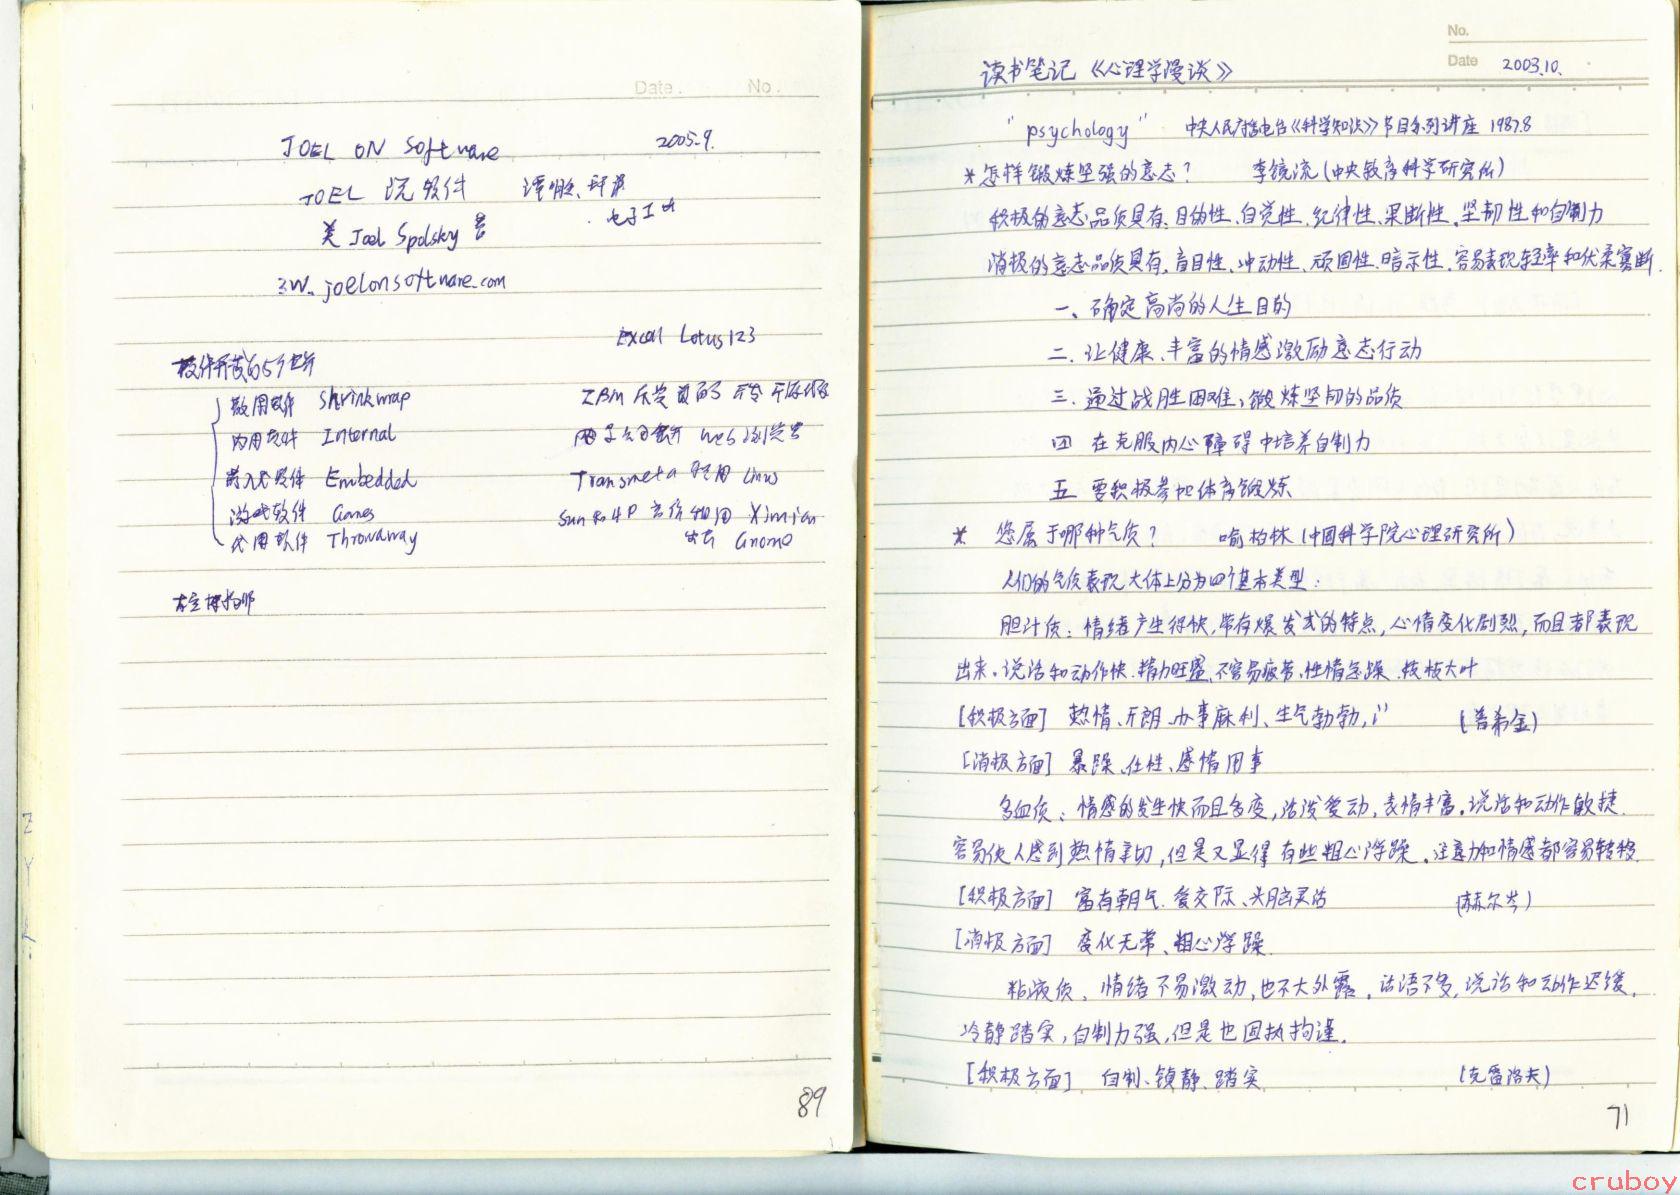 Date.  No.
JOEL ON Software  2005.9.
JOEL 说软件  谭明金、邱
美 Joel Spolsky 著  电子工业
3W. joelonsoftware.com
Excel Lotus 123
软件开发的5个世界
Shrinkwrap
内用软件 Internal
嵌入式软件 Embedded  Transmeta 雇用 Linus
游戏软件 Games  Sun 和 HP 雇用 Ximian
Throwaway  Gnome
89
No.
读书笔记《心理学漫谈》  Date 2003.10.
"psychology"  中央人民广播电台《科学知识》节目系列讲座 1987.8
*怎样锻炼坚强的意志?  李镜流(中央教育科学研究所)
积极的意志品质具有:目的性、自觉性、纪律性、果断性、坚韧性和自制力
消极的意志品质具有,盲目性、冲动性、顽固性、暗示性、容易表现轻率和优柔寡断.
一、确定高尚的人生目的
二、让健康、丰富的情感激励意志行动
三、通过战胜困难,锻炼坚韧的品质
四 在克服内心障碍中培养自制力
五 要积极参加体育锻炼
* 您属于哪种气质?  喻柏林(中国科学院心理研究所)
人们的气质表现大体上分为四个基本类型:
胆汁质:情绪产生得快,带有爆发式的特点,心情变化剧烈,而且都表现
出来。说话和动作快.精力旺盛、不容易疲劳、性情急躁.枝枝大叶
[积极方面] 热情、开朗、办事麻利、生气勃勃,  (普希金)
[消极方面] 暴躁、任性、感情用事
多血质:情感的发生快而且多变,活泼爱动,表情丰富。说话和动作敏捷.
容易使人感到热情亲切,但是又显得有些粗心浮躁。注意力和情感都容易转移.
[积极方面] 富有朝气.爱交际、头脑灵活  (赫尔岑)
[消极方面] 变化无常、粗心浮躁.
粘液质、情绪不易激动,也不大外露。话语不多,说话和动作迟缓,
冷静踏实,自制力强,但是也固执拘谨.
[积极方面] 自制、镇静、踏实  (克雷洛夫)
71
cruboy